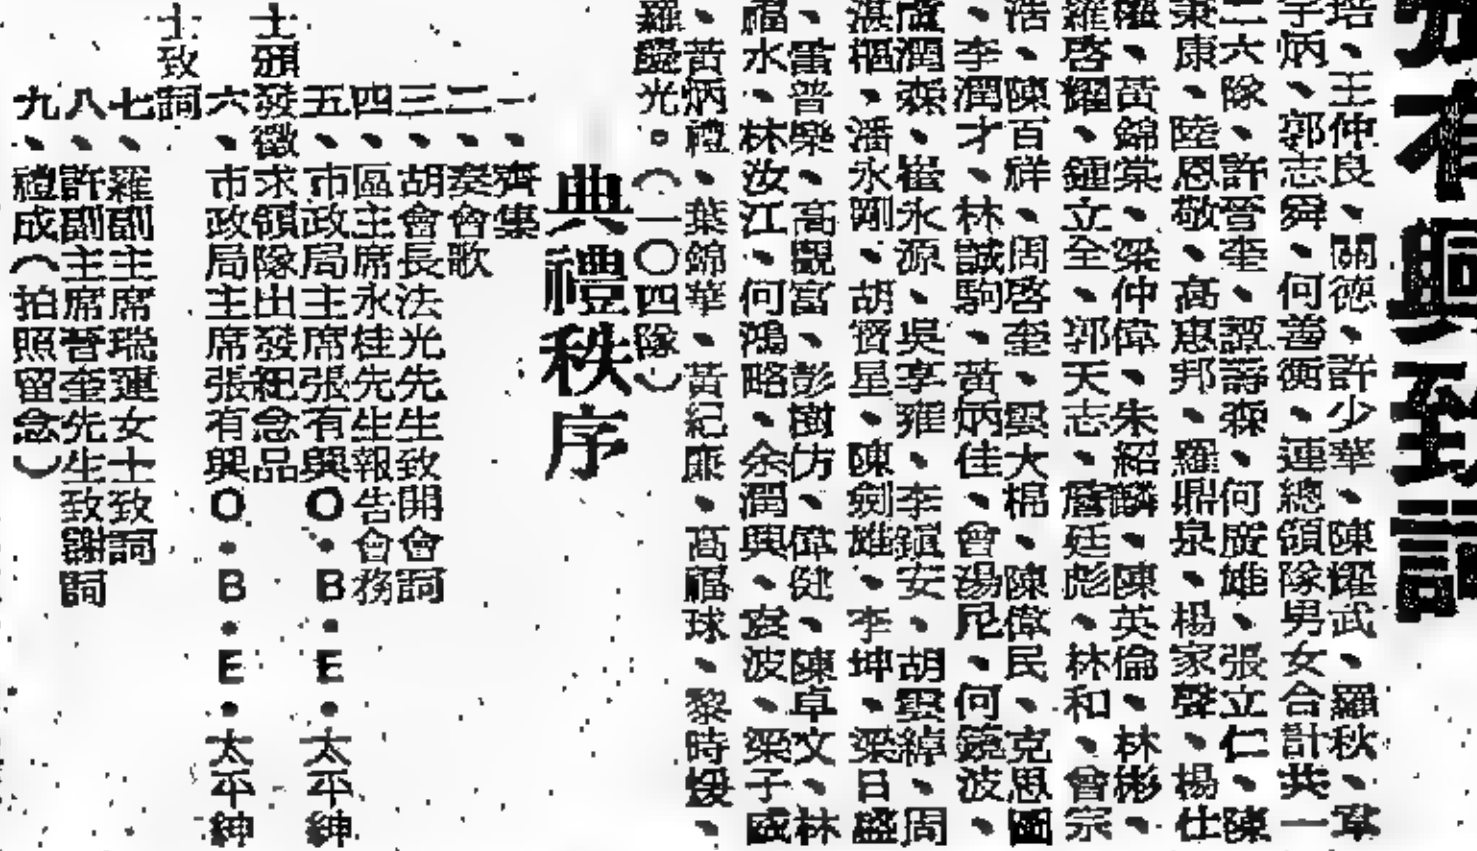 有興致詞
培、王仲良、關德、許少華、陳耀武、羅秋、覃
宇炳、郭志舜、何善衡、連總領隊男女合計共一
二六隊、許晉奎、譚壽森、何廣雄、張立仁、陳
秉康、陸恩敬、高惠邦、羅鼎泉、楊家聲、楊仕
、黃錦棠、梁仲偉、朱紹麟、陳英倫、林彬、
羅啓耀、鍾立全、郭天志、詹廷彪、林和、曾宗
浩、陳百祥、周啓奎、雲大棉、陳偉民、克思圖
、李潤才、林誠駒、黃炳佳、曾湯尼、何鏡波、
盧潤森、崔永源、吳享雍、李鎮安、胡雲綽、周
湛樞、潘永剛、胡寶星、陳劍雄、李坤、梁日盛
、雷普樂、高觀富、彭樹坊、偉健、陳卓文、林
福水、林汝江、何鴻略、余潤興、袁波、梁子威
、黃炳禮、葉錦華、黃紀廉、高福球、黎時煖、
羅慶光。（一〇四隊）
典禮秩序
一、齊集
二、奏會歌
三、胡會長法光先生致開會詞
四、區主席永桂先生報告會務
五、市政局主席張有興O·B·E·太平紳
士頒發徵求領隊出發紀念品
六、市政局主席張有興O·B·E·太平紳
士致詞
七、羅副主席瑞運女士致詞
八、許副主席晉奎先生致謝詞
九、禮成（拍照留念）